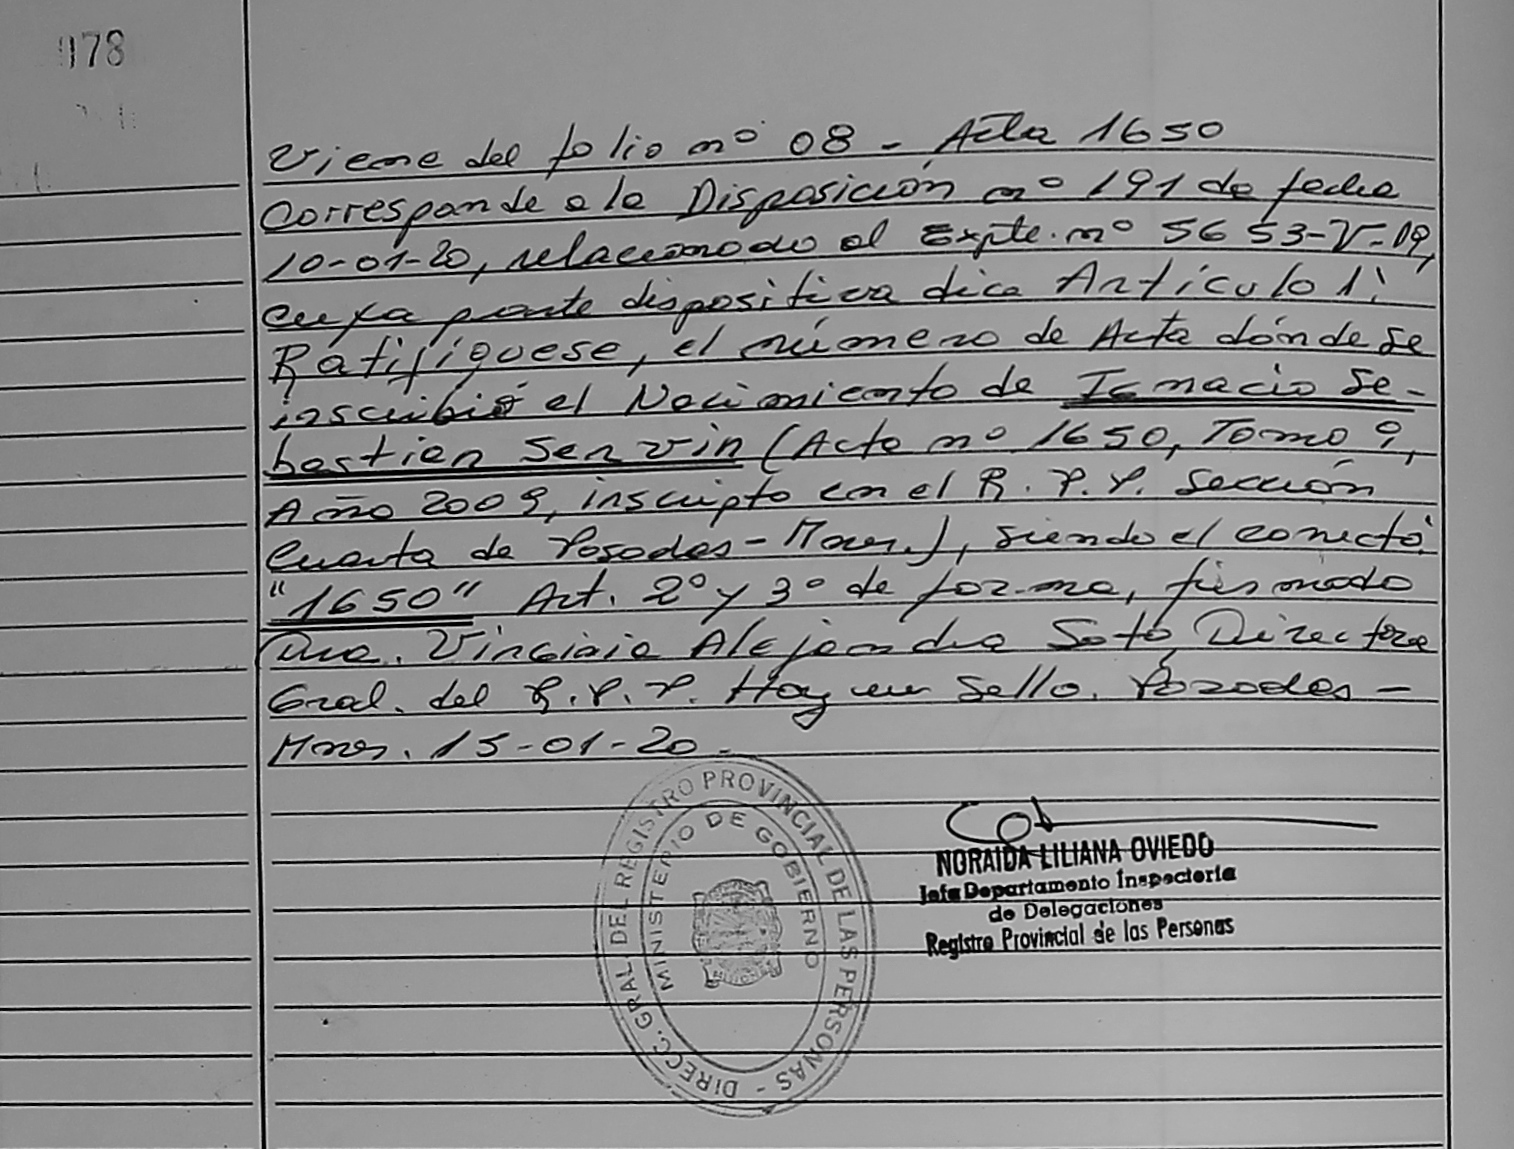 078
Viene del folio nº 08 - Acta 1650
Corresponde a la Disposición nº 191 de fecha
10-01-20, relacionado al Expte. nº 5653-V-09,
cuya parte dispositiva dice Artículo 1:
Ratifíquese, el número de Acta dónde se
inscribió el Nacimiento de Ignacio Se-
bastian Servin (Acta nº 1650, Tomo 9,
Año 2009, inscripto en el R. P. P. Sección
Cuarta de Posadas - Mnes.), siendo el correcto:
"1650" Art. 2º y 3º de forma, firmado
Dra. Virginia Alejandra Soto Directora
Gral. del R. P. P. Hay un Sello. Posadas -
Mnes. 15-01-20.-
DIRECC. GRAL. DEL REGISTRO PROVINCIAL DE LAS PERSONAS -
MINISTERIO DE GOBIERNO
NORAIDA LILIANA OVIEDO
Jefa Departamento Inspectoria
de Delegaciones
Registro Provincial de las Personas